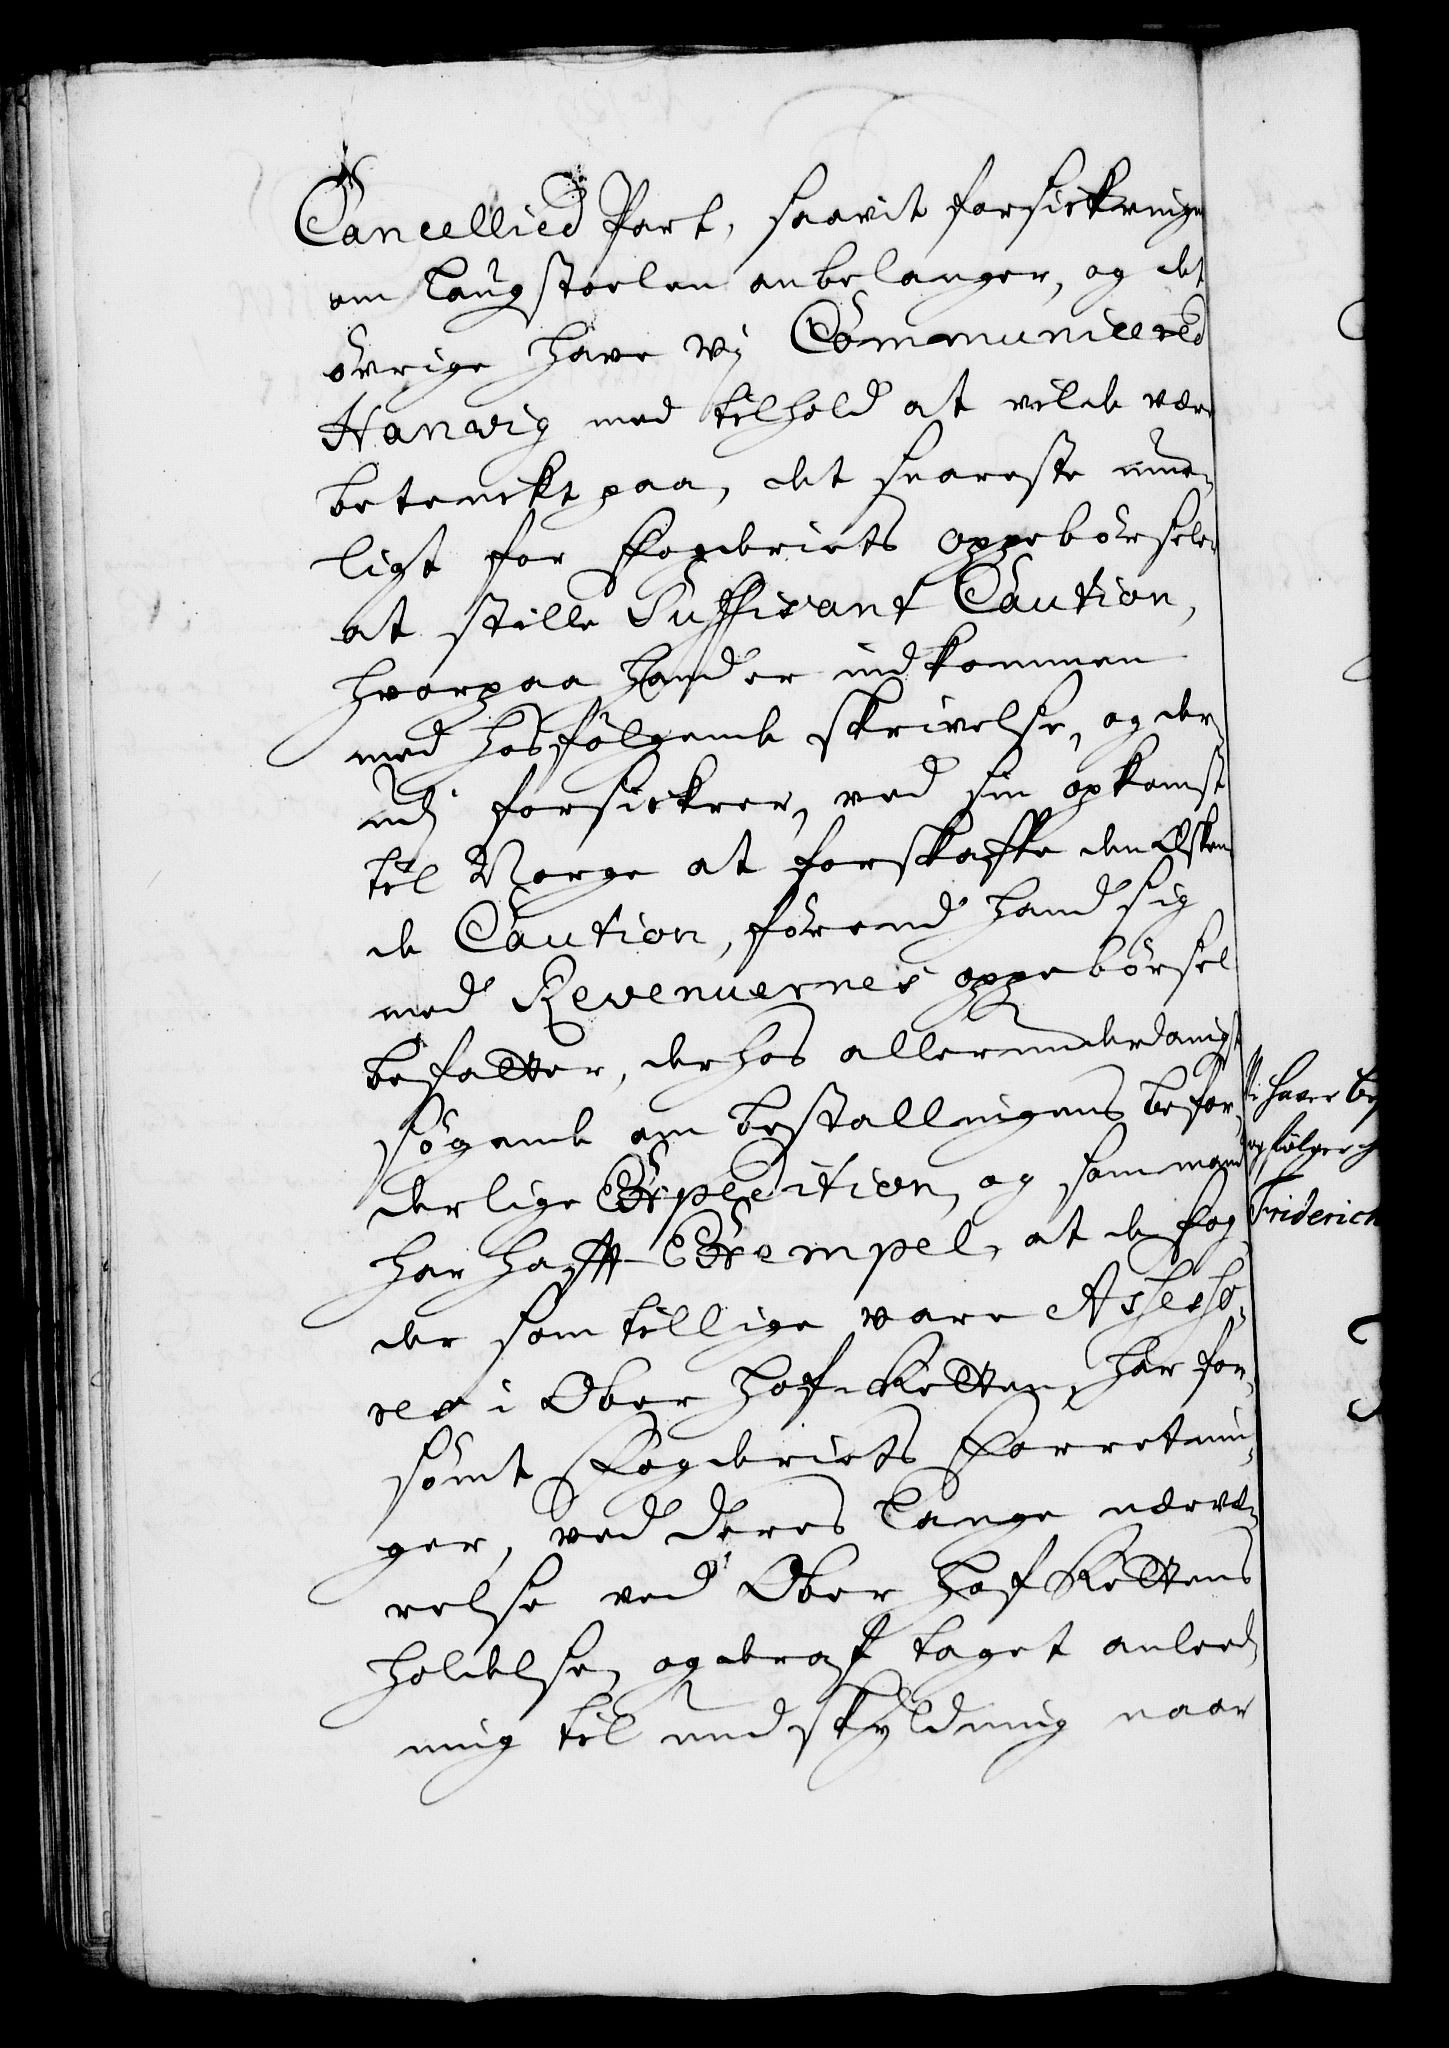 Cancellied Part, saavit forsickringen
om Laugstoelen anbelanger, og det
övrige have Vj Communicered
Hanvig med tilhold at vilde være
betenckt paa, det snareste mue-
ligt for Fogderiets oppebörseler
at stille Suffisant Caution,
hvorpaa hand er indkommen
med hosfölgende skrivelse, og der-
udj forsickrer, ved sin opkomst
til Norge at forskaffe den Æsken-
de Caution, förend hand sig
med Revenuernes oppebörsel
befatter, derhos allerunderdanigst
sögende om bestallingens befor-
derlige Expedition, og som mand
har hafft Exempel, at de Fog-
der som tillige vare Assesso-
rer i Ober Hof-Retten, har for-
sömt Fogderiets Forretnin-
ger, ved deres lange nærvæ-
relse ved Ober Hof Rettens
holdelse, og deraf taget anled-
ning til undskyldning naar
haver
og fölger
Friderich